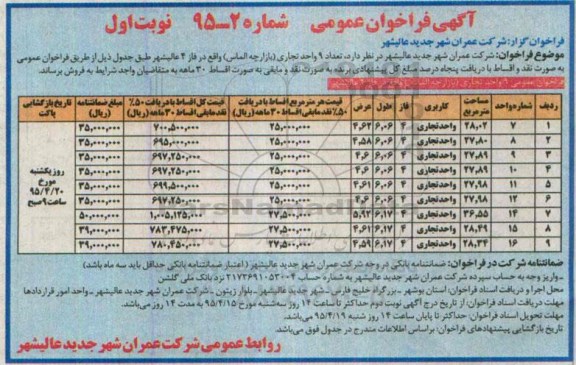 آگهی فراخوان عمومی شماره ۲-۹۵ نوبت اول
فراخوان گزار: شرکت عمران شهر جدید عالیشهر
موضوع فراخوان: شرکت عمران شهر جدید عالیشهر در نظر دارد، تعداد ۹ واحد تجاری (بازارچه الماس) واقع در فاز ۴ عالیشهر طبق جدول ذیل از طریق فراخوان عمومی
به صورت نقد و اقساط با دریافت پنجاه درصد مبلغ کل پیشنهادی برنده به صورت نقد و مابقی به صورت اقساط ۳۰ ماهه به متقاضیان واجد شرایط به فروش برساند.
ردیف شماره واحد مساحت مترمربع کاربری فاز طول عرض قیمت هر مترمربع اقساط با دریافت ۵۰٪ نقد مابقی اقساط ۳۰ ماهه (ریال) قیمت کل اقساط با دریافت ۵۰٪ نقد مابقی اقساط ۳۰ ماهه (ریال) مبلغ ضمانتنامه (ریال) تاریخ بازگشایی پاکت
۱ ۷ ۲۸,۰۲ واحد تجاری ۴ ۶,۰۶ ۴,۶۲ ۲۵,۰۰۰,۰۰۰ ۷۰۰,۵۰۰,۰۰۰ ۳۵,۰۰۰,۰۰۰
۲ ۸ ۲۷,۸۰ واحد تجاری ۴ ۶,۰۶ ۴,۵۸ ۲۵,۰۰۰,۰۰۰ ۶۹۵,۰۰۰,۰۰۰ ۳۵,۰۰۰,۰۰۰
۳ ۹ ۲۷,۸۹ واحد تجاری ۴ ۶,۰۶ ۴,۶ ۲۵,۰۰۰,۰۰۰ ۶۹۷,۲۵۰,۰۰۰ ۳۵,۰۰۰,۰۰۰
۴ ۱۰ ۲۷,۸۹ واحد تجاری ۴ ۶,۰۶ ۴,۶ ۲۵,۰۰۰,۰۰۰ ۶۹۷,۲۵۰,۰۰۰ ۳۵,۰۰۰,۰۰۰
۵ ۱۱ ۲۷,۹۸ واحد تجاری ۴ ۶,۰۶ ۴,۶۱ ۲۵,۰۰۰,۰۰۰ ۶۹۹,۵۰۰,۰۰۰ ۳۵,۰۰۰,۰۰۰
۶ ۱۲ ۲۷,۹۸ واحد تجاری ۴ ۶,۰۶ ۴,۶ ۲۵,۰۰۰,۰۰۰ ۶۹۷,۲۵۰,۰۰۰ ۳۵,۰۰۰,۰۰۰
۷ ۱۴ ۳۶,۵۵ واحد تجاری ۴ ۶,۱۷ ۵,۹۲ ۲۷,۵۰۰,۰۰۰ ۱,۰۰۵,۱۲۵,۰۰۰ ۵۰,۰۰۰,۰۰۰
۸ ۱۵ ۲۸,۴۹ واحد تجاری ۴ ۶,۱۷ ۴,۶۱ ۲۷,۵۰۰,۰۰۰ ۷۸۳,۴۷۵,۰۰۰ ۳۹,۰۰۰,۰۰۰
۹ ۱۶ ۲۸,۳۴ واحد تجاری ۴ ۶,۱۷ ۴,۵۹ ۲۷,۵۰۰,۰۰۰ ۷۸۰,۴۵۰,۰۰۰ ۳۹,۰۰۰,۰۰۰
روز یکشنبه
مورخ
۹۵/۴/۲۰
ساعت ۹ صبح
ضمانتنامه شرکت در فراخوان: ضمانتنامه بانکی در وجه شرکت عمران شهر جدید عالیشهر (اعتبار ضمانتنامه بانکی حداقل باید سه ماه باشد)
ـ واریز وجه به حساب سپرده شرکت عمران شهر جدید عالیشهر به شماره حساب ۲۱۷۳۶۹۱۰۵۳۰۰۴ نزد بانک ملی گلشن
محل اجرا و دریافت اسناد فراخوان: استان بوشهر ـ بزرگراه خلیج فارس ـ شهر جدید عالیشهر ـ بلوار زیتون ـ شرکت عمران شهر جدید عالیشهر ـ واحد امور قراردادها
مهلت دریافت اسناد فراخوان: از تاریخ درج آگهی نوبت دوم حداکثر تا ساعت ۱۴ روز سه‌شنبه مورخ ۹۵/۴/۱۵ به مدت ۱۴ روز می‌باشد.
مهلت تحویل اسناد فراخوان: حداکثر تا پایان ساعت ۱۴ روز شنبه ۹۵/۴/۱۹ می‌باشد.
تاریخ بازگشایی پیشنهادهای فراخوان: براساس اطلاعات مندرج در جدول فوق می‌باشد.
روابط عمومی شرکت عمران شهر جدید عالیشهر